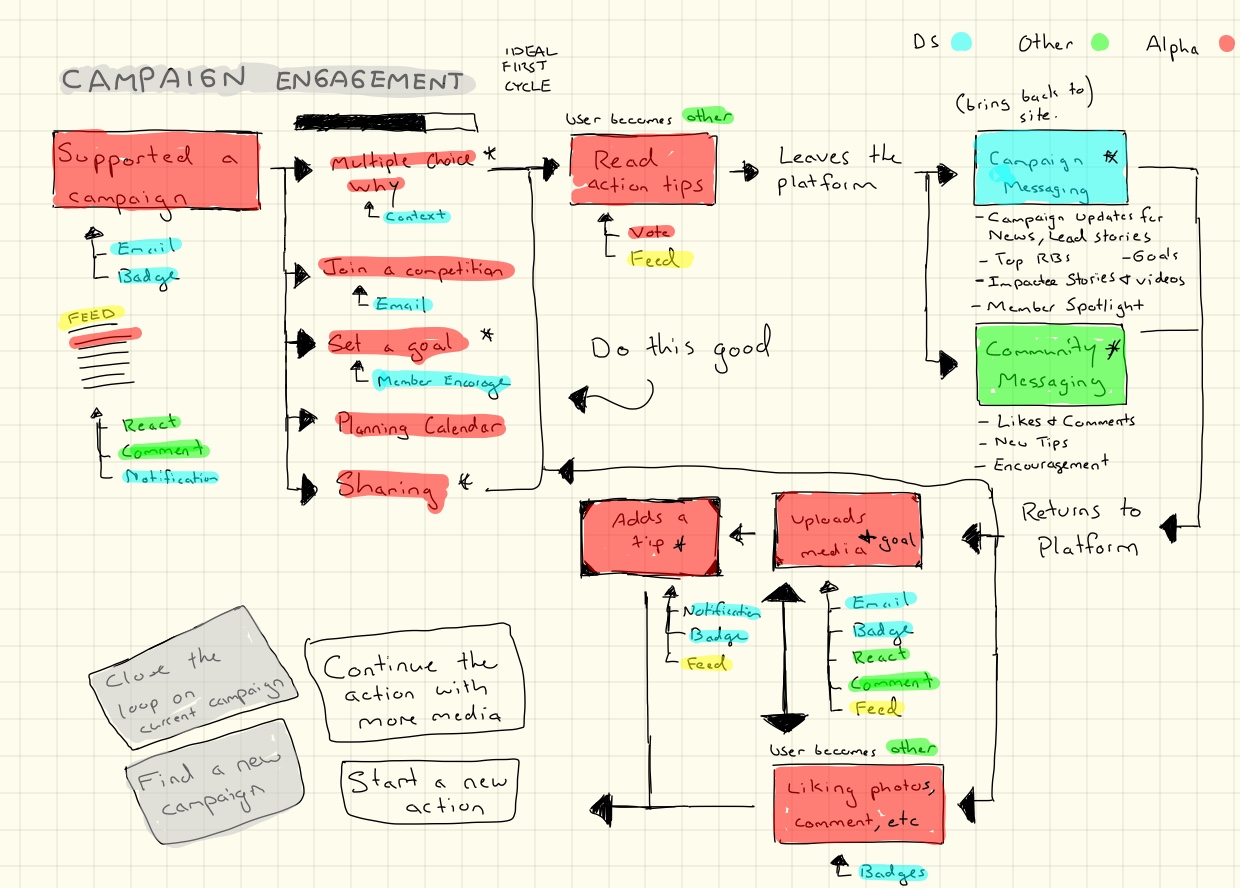 DS
Other
Alpha
CAMPAIGN ENGAGEMENT
IDEAL
FIRST
CYCLE
Supported a
campaign
Email
Badge
FEED
React
Comment
Notification
Multiple Choice *
Why
Context
Join a competition
Email
Set a goal *
Member Encorage
Planning Calendar
Sharing *
User becomes other
Read
action tips
Vote
Feed
Leaves the
platform
(bring back to)
site.
Campaign *
Messaging
- Campaign updates for
News, Lead stories
- Top RBs - Goals
- Impactee Stories & videos
- Member Spotlight
Community *
Messaging
- Likes & Comments
- New Tips
- Encouragement
Do this good
Returns to
Platform
Uploads
media * goal
Email
Badge
React
Comment
Feed
Adds a
tip *
Notification
Badge
Feed
User becomes other
Liking photos,
comment, etc
Badges
Close the
loop on
current campaign
Continue the
action with
more media
Find a new
campaign
Start a new
action